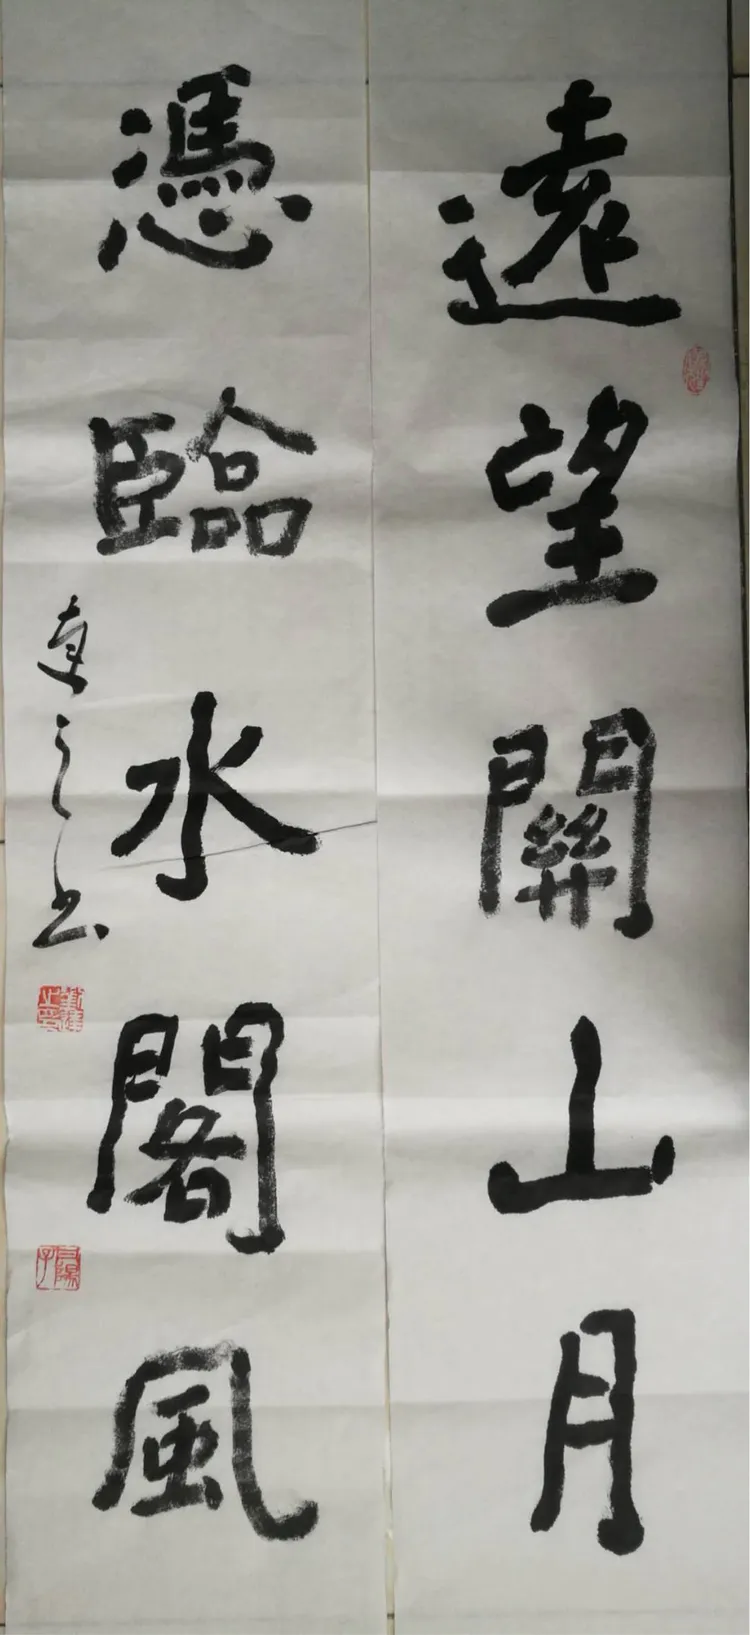 遠望關山月
憑臨水閣風
建之书